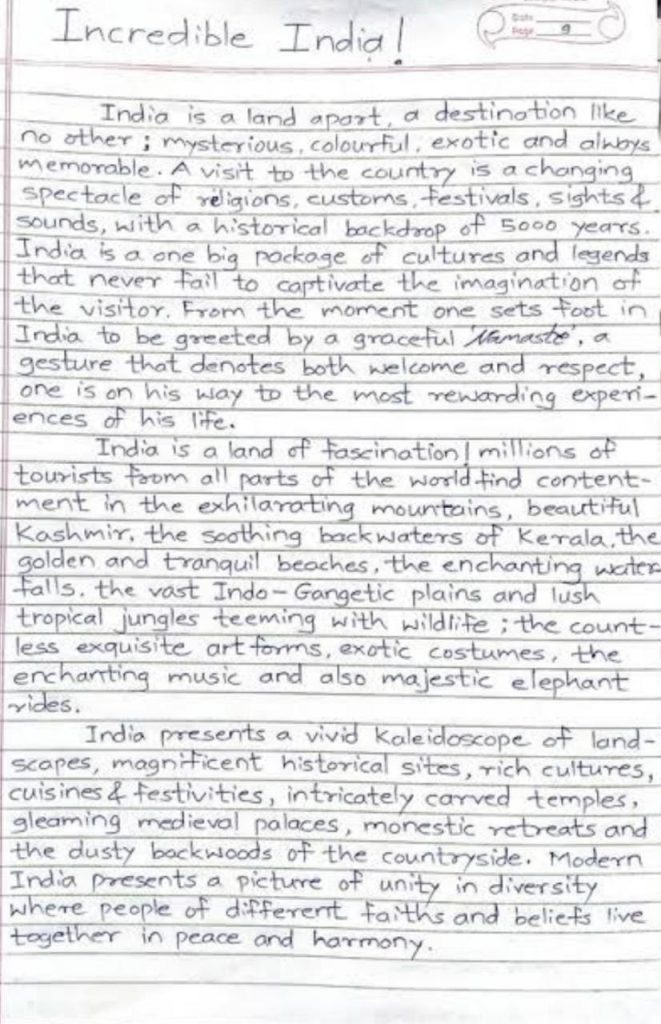 Incredible India!
Date
Page 9
India is a land apart, a destination like
no other ; mysterious, colourful, exotic and always
memorable. A visit to the country is a changing
spectacle of religions, customs, festivals, sights &
sounds, with a historical backdrop of 5000 years.
India is a one big package of cultures and legends
that never fail to captivate the imagination of
the visitor. From the moment one sets foot in
India to be greeted by a graceful 'Namaste', a
gesture that denotes both welcome and respect,
one is on his way to the most rewarding experi-
ences of his life.
India is a land of fascination! millions of
tourists from all parts of the world find content-
ment in the exhilarating mountains, beautiful
Kashmir, the soothing backwaters of Kerala, the
golden and tranquil beaches, the enchanting water
falls, the vast Indo-Gangetic plains and lush
tropical jungles teeming with wildlife ; the count-
less exquisite art forms, exotic costumes, the
enchanting music and also majestic elephant
rides.
India presents a vivid kaleidoscope of land-
scapes, magnificent historical sites, rich cultures,
cuisines & festivities, intricately carved temples,
gleaming medieval palaces, monestic retreats and
the dusty backwoods of the countryside. Modern
India presents a picture of unity in diversity
where people of different faiths and beliefs live
together in peace and harmony.